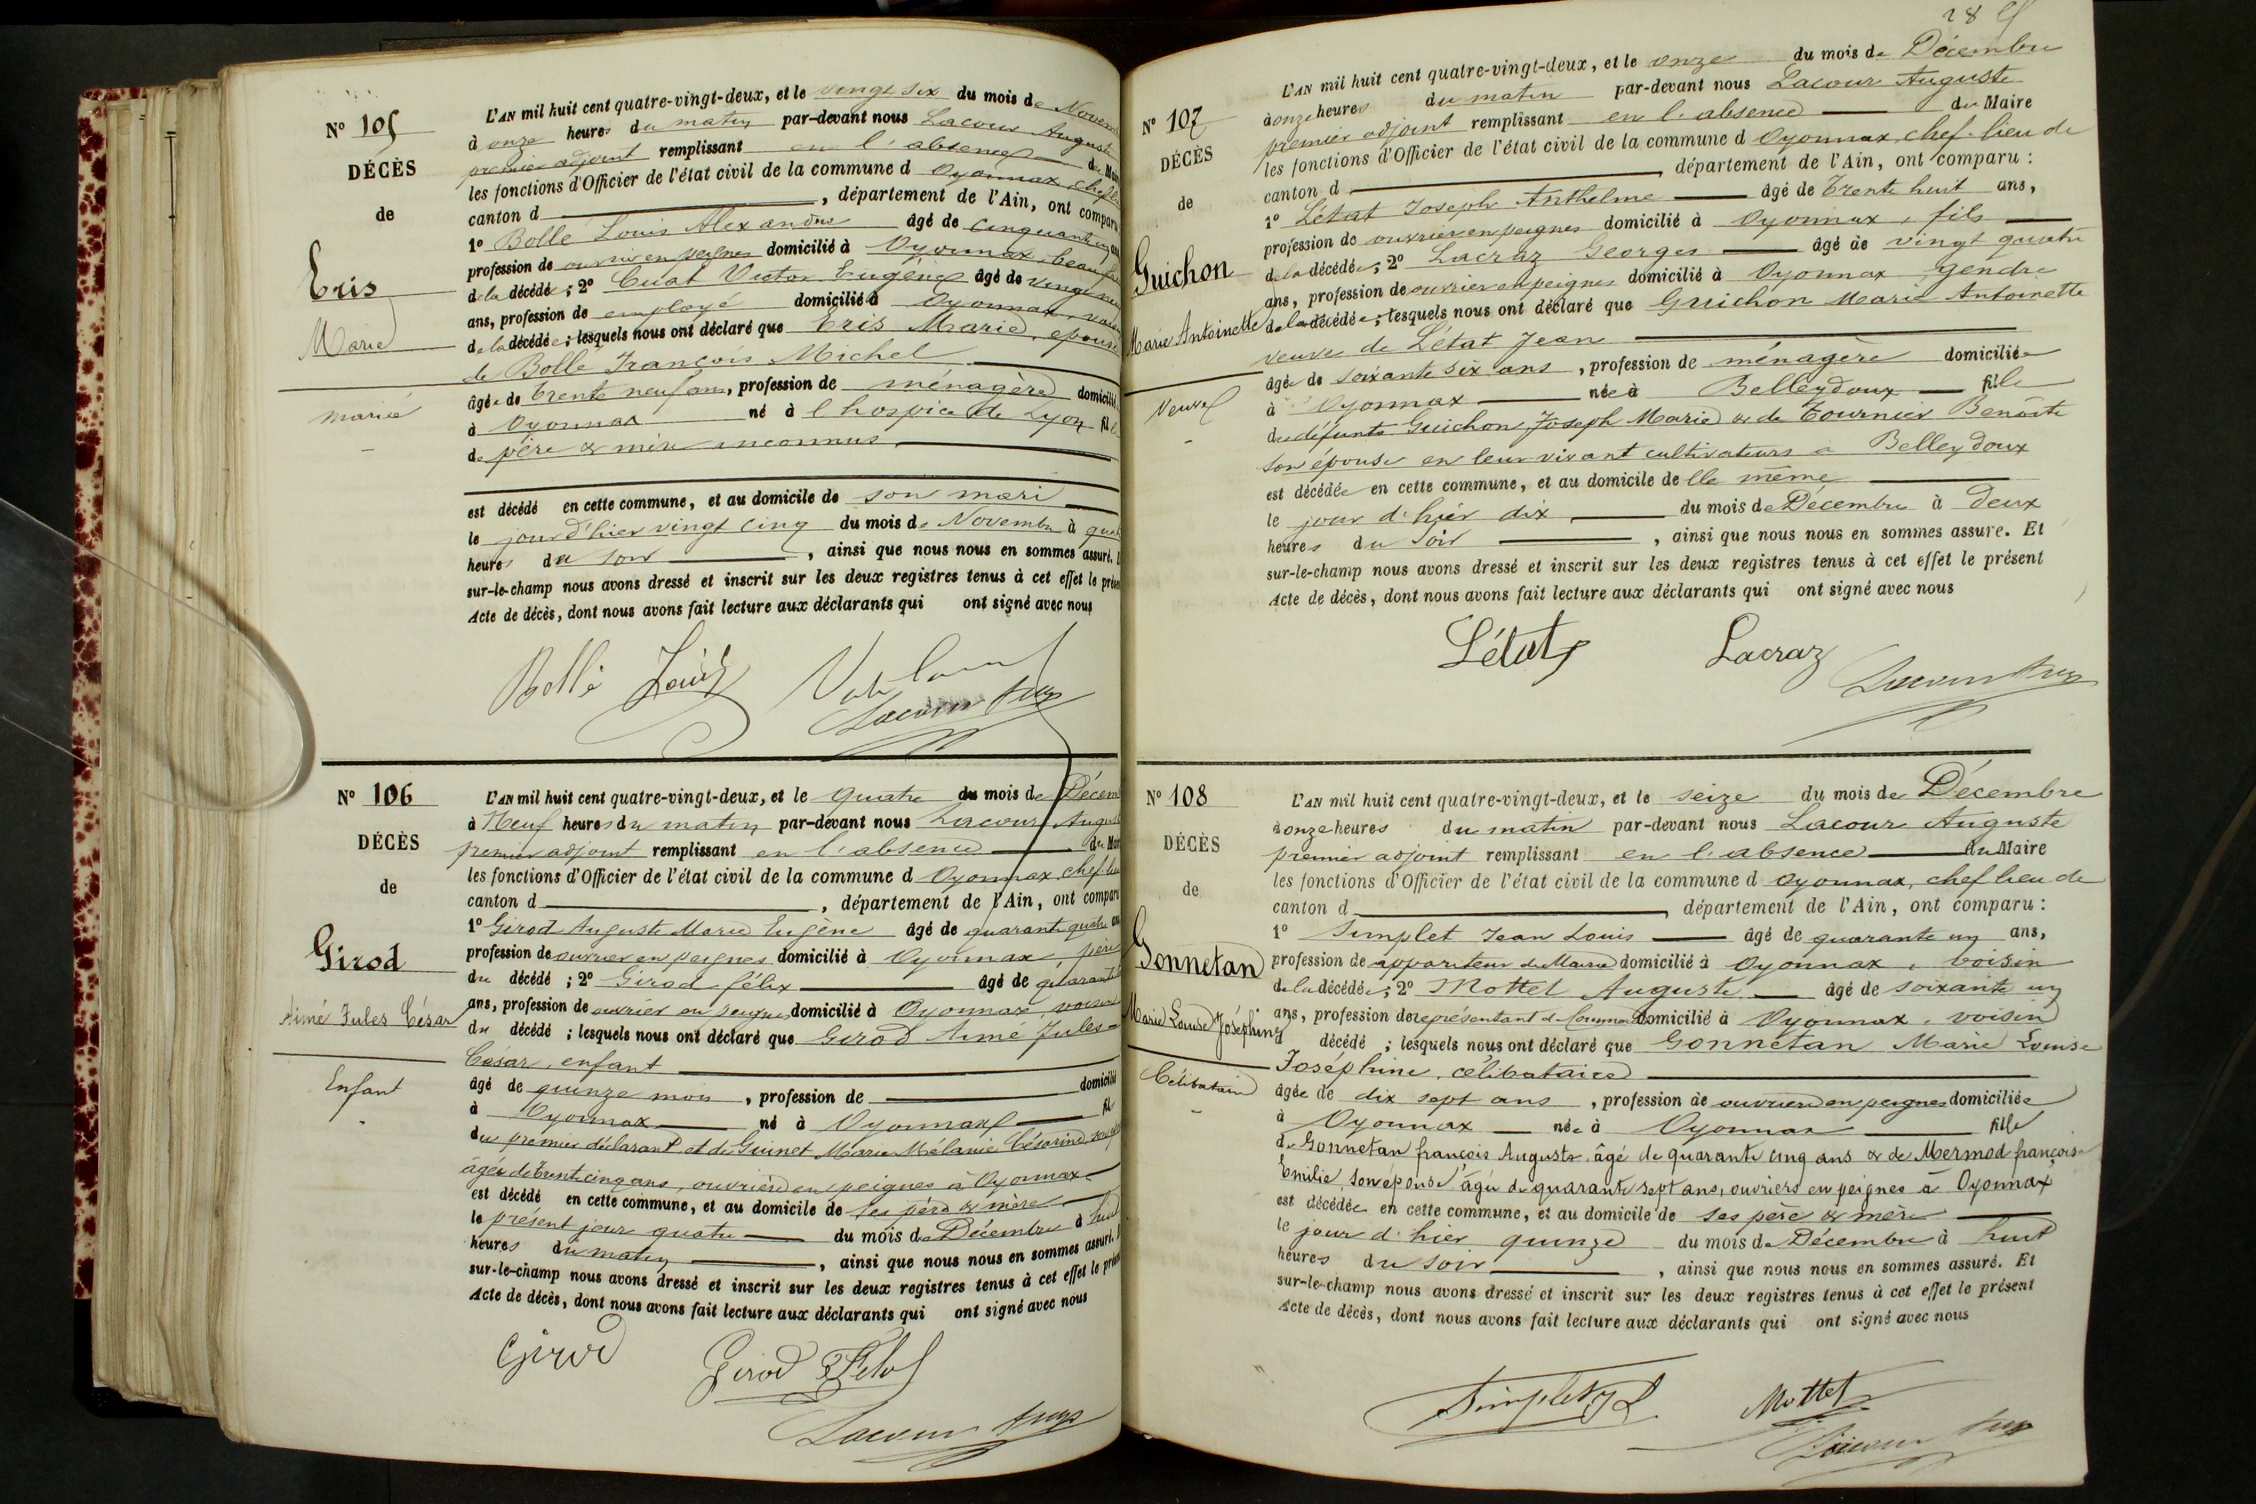 N° 105
DÉCÈS
de
Eris
Marie
mariée
L'AN mil huit cent quatre-vingt-deux, et le vingt six du mois de Novem
à onze heures du matin par-devant nous Lacour Auguste
premier adjoint remplissant en l'absence du Mai
les fonctions d'Officier de l'état civil de la commune d Oyonnax, chef
canton d , département de l'Ain, ont comparu
1° Bollé Louis Alexandre âgé de cinquante
profession de ouvrier en peignes domicilié à Oyonnax, beau
de la décédée ; 2° Cuat Victor Eugène âgé de vingt
ans, profession de employé domicilié à Oyonnax, voisin
de la décédée ; lesquels nous ont déclaré que Eris Marie, épouse
de Bollé François Michel
âgée de trente neuf ans, profession de ménagère domicilié
à Oyonnax né à l'hospice de Lyon fil
de père & mère inconnus
est décédé en cette commune, et au domicile de son mari
le jour d'hier vingt cinq du mois de Novembre à
heures du soir , ainsi que nous nous en sommes assuré.
sur-le-champ nous avons dressé et inscrit sur les deux registres tenus à cet effet le prése
Acte de décès, dont nous avons fait lecture aux déclarants qui ont signé avec nous
Bollé Louis
Lacour Aug
N° 106
DÉCÈS
de
Girod
Aimé Jules César
Enfant
L'AN mil huit cent quatre-vingt-deux, et le quatre du mois de Décem
à Neuf heures du matin par-devant nous Lacour Auguste
premier adjoint remplissant en l'absence du Mai
les fonctions d'Officier de l'état civil de la commune d Oyonnax chef lieu
canton d , département de l'Ain, ont comparu
1° Girod Auguste Marie Eugène âgé de quarante quatre an
profession de ouvrier en peignes domicilié à Oyonnax, père
du décédé ; 2° Girod félix âgé de quarante
ans, profession de ouvrier en peignes domicilié à Oyonnax, voisin
du décédé ; lesquels nous ont déclaré que Girod Aimé Jules
César, enfant
âgé de quinze mois , profession de domicilié
à Oyonnax né à Oyonnax fil
du premier déclarant et de Guinet Marie Mélanie Césarine, son
âgée de trente cinq ans, ouvrière en peignes à Oyonnax
est décédé en cette commune, et au domicile de ses père & mère
le présent jour quatre du mois de Décembre à huit
heures du matin , ainsi que nous nous en sommes assuré.
sur-le-champ nous avons dressé et inscrit sur les deux registres tenus à cet effet le présen
Acte de décès, dont nous avons fait lecture aux déclarants qui ont signé avec nous
Girod
Girod Félix
Lacour Aug
N° 107
DÉCÈS
de
Guichon
Marie Antoinette
Veuve
L'AN mil huit cent quatre-vingt-deux, et le onze du mois de Décembre
à onze heures du matin par-devant nous Lacour Auguste
premier adjoint remplissant en l'absence du Maire
les fonctions d'Officier de l'état civil de la commune d Oyonnax, chef-lieu de
canton d , département de l'Ain, ont comparu :
1° Létat Joseph Anthelme âgé de trente huit ans,
profession de ouvrier en peignes domicilié à Oyonnax, fils
de la décédée ; 2° Lacraz Georges âgé de vingt quatre
ans, profession de ouvrier en peignes domicilié à Oyonnax gendre
de la décédée ; lesquels nous ont déclaré que Guichon Marie Antoinette
veuve de Létat Jean
âgée de soixante six ans , profession de ménagère domiciliée
à Oyonnax née à Belleydoux fille
de défunts Guichon Joseph Marie & de Tournier Benoite
son épouse en leur vivant cultivateurs à Belleydoux
est décédée en cette commune, et au domicile de lle même
le jour d'hier dix du mois de Décembre à deux
heures du soir , ainsi que nous nous en sommes assuré. Et
sur-le-champ nous avons dressé et inscrit sur les deux registres tenus à cet effet le présent
Acte de décès, dont nous avons fait lecture aux déclarants qui ont signé avec nous
Létat
Lacraz
Lacour Aug
N° 108
DÉCÈS
de
Gonnetan
Marie Louise Joséphine
Célibataire
L'AN mil huit cent quatre-vingt-deux, et le seize du mois de Décembre
à onze heures du matin par-devant nous Lacour Auguste
premier adjoint remplissant en l'absence du Maire
les fonctions d'Officier de l'état civil de la commune d Oyonnax, chef lieu de
canton d , département de l'Ain, ont comparu :
1° Simplet Jean Louis âgé de quarante un ans,
profession de appariteur de Mairie domicilié à Oyonnax, voisin
de la décédée ; 2° Mottet Auguste âgé de soixante un
ans, profession de représentant de Commerce domicilié à Oyonnax, voisin
décédé ; lesquels nous ont déclaré que Gonnetan Marie Louise
Joséphine, célibataire
âgée de dix sept ans , profession de ouvrière en peignes domiciliée
à Oyonnax née à Oyonnax fille
de Gonnetan françois Auguste, âgé de quarante cinq ans & de Mermod françoise
Emilie, son épouse âgée de quarante sept ans, ouvriers en peignes à Oyonnax
est décédée en cette commune, et au domicile de ses père & mère
le jour d'hier quinze du mois de Décembre à huit
heures du soir , ainsi que nous nous en sommes assuré. Et
sur-le-champ nous avons dressé et inscrit sur les deux registres tenus à cet effet le présent
Acte de décès, dont nous avons fait lecture aux déclarants qui ont signé avec nous
Simplet J L
Mottet
Lacour Aug